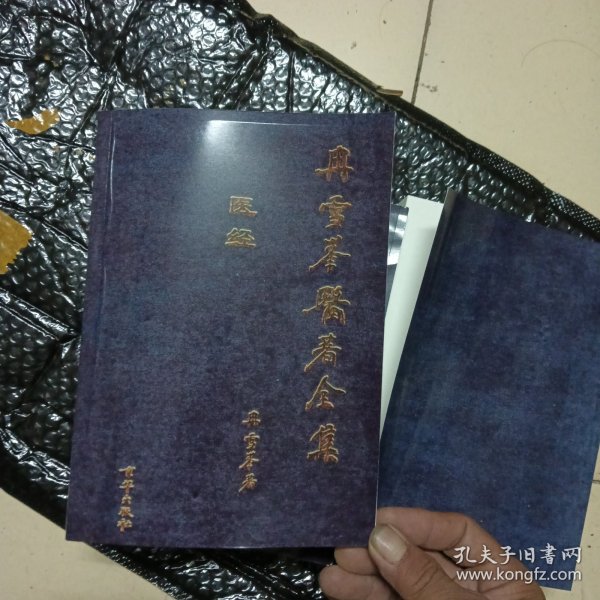 冉雪峯醫著全集
医经
冉雪峯著
京华出版社
孔夫子旧书网
www.kongfz.com